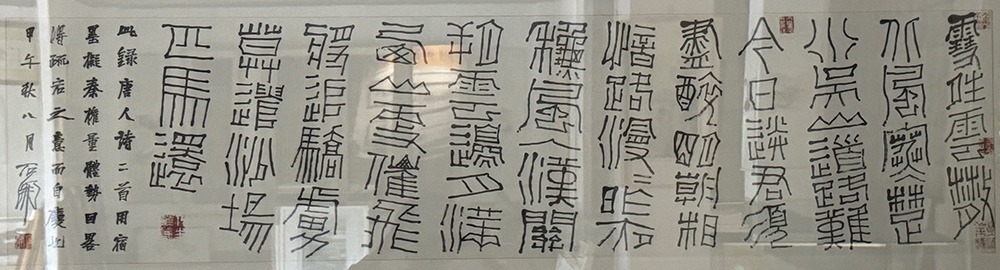 雪晴雲散
北風寒楚
水吳山道路難
今日送君須
盡醉明朝相
憶路漫漫昨夜
秋風入漢關
朔雲邊月滿
西山更催飛
將追驕虜
莫遣沙場
匹馬還
此錄唐人詩二首用宿
墨擬秦權量體勢因畧
得疏宕之意而自慶也
甲午秋八月石開